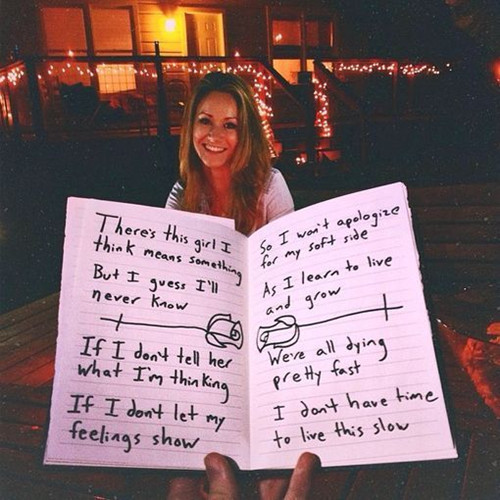 There's this girl I
think means something
But I guess I'll
never know
If I don't tell her
what I'm thinking
If I don't let my
feelings show
So I won't apologize
for my soft side
As I learn to live
and grow
We're all dying
pretty fast
I don't have time
to live this slow